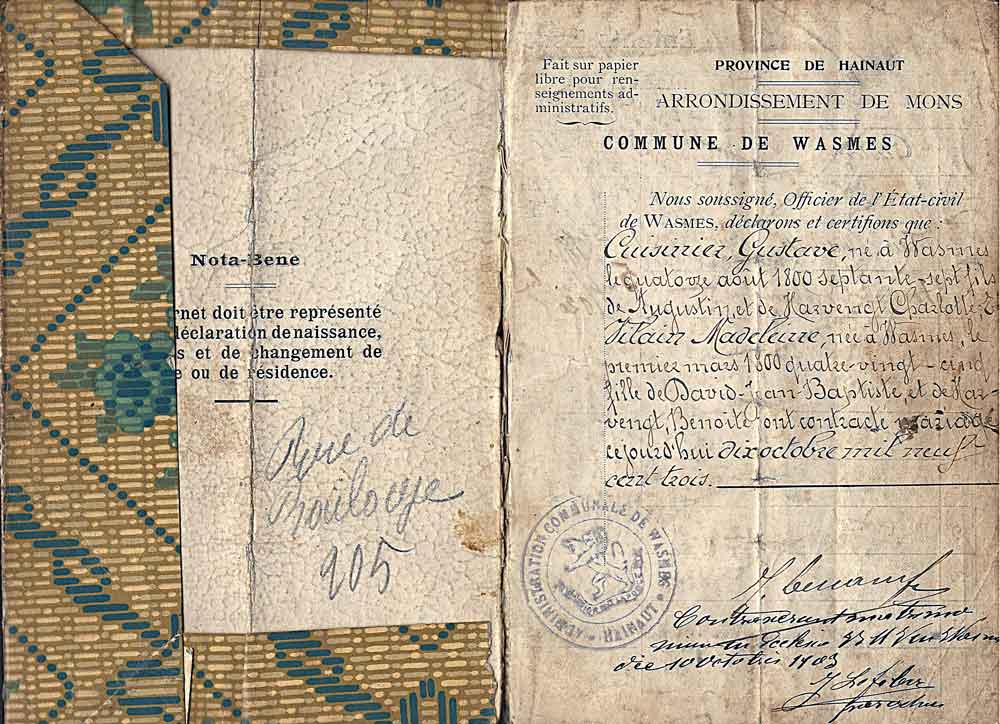 Nota-Bene
rnet doit être représenté
déclaration de naissance,
s et de changement de
e ou de résidence.
Rue de
105
Fait sur papier
libre pour ren-
seignements ad-
ministratifs.
PROVINCE DE HAINAUT
ARRONDISSEMENT DE MONS
COMMUNE DE WASMES
Nous soussigné, Officier de l'État-civil
de WASMES, déclarons et certifions que :
Cuisinier, Gustave, né à Wasmes
le quatorze août 1800 septante-sept, fils
de Augustin, et de Harvengt Charlotte &
Vilain Madeleine, née à Wasmes, le
premier mars 1800 quatre-vingt-cinq
fille de David-Jean-Baptiste, et de Har-
vengt, Benoite ont contracté mariage
cejourd'hui dix octobre mil neuf
cent trois.
ADMINISTRATION COMMUNALE DE WASMES
HAINAUT
die 10 octobris 1903